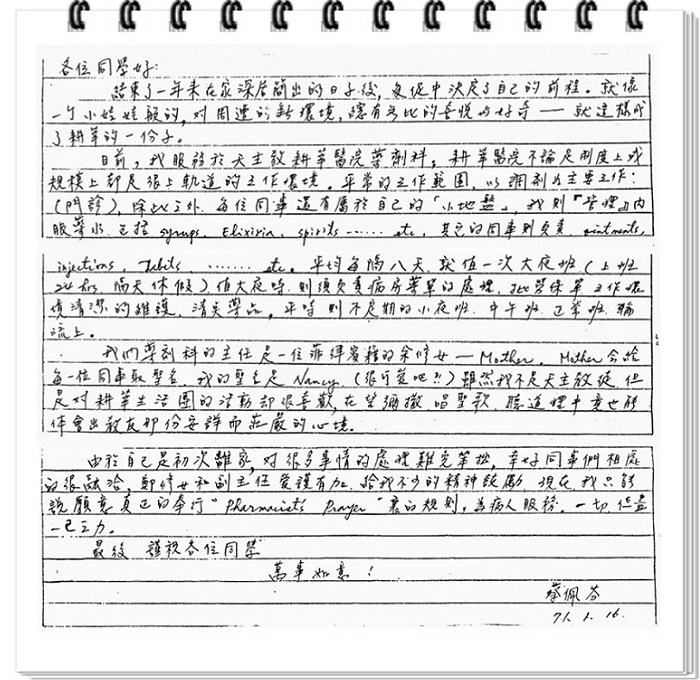 各位同學好:
結束了一年來在家深居簡出的日子後,匆促中決定了自己的前程。就像
一個小娃娃般的,對周遭的新環境,總有無比的喜悅與好奇——就這樣成
了耕莘的一份子。
目前,我服務於天主教耕莘醫院藥劑科,耕莘醫院不論是制度上或
規模上都是很上軌道的工作環境。平常的工作範圍,以調劑為主要工作:
(門診),除此之外,每位同事還有屬於自己的「小地盤」,我則『管理』內
服藥水,包括 syrups, Elixiria, spirits …… etc, 其它的同事則負責 ointments,
injections, …… etc. 平均每隔八天,就值一次大夜班(上班
24 hrs, 隔天休假)值大夜時,則須負責病房藥單的處理,批勞保單,工作環
境清潔的維護,清點藥品,平時則不定期的小夜班,中午班,正常班,輪
流上。
我們藥劑科的主任是一位菲律賓籍的余修女—Mother, Mother 会給
每一位同事取聖名,我的聖名是 Nancy,(很可愛吧?!)雖然我不是天主教徒,但
是對耕莘生活圈的活動却很喜歡,在望彌撒,唱聖歌,聽道理中竟也能
體會出教友那份安詳而莊嚴的心境。
由於自己是初次離家,對很多事情的處理難免笨拙,幸好同事們相處
的很融洽,鄭修女和副主任愛護有加,給我不少的精神鼓勵,現在,我只能
說願意真正的奉行 "Pharmacist's Prayer" 裏的規則,為病人服務,一切但盡
一己之力。
最後 謹祝各位同學
萬事如意!
蔡佩芬
71. 1. 16.